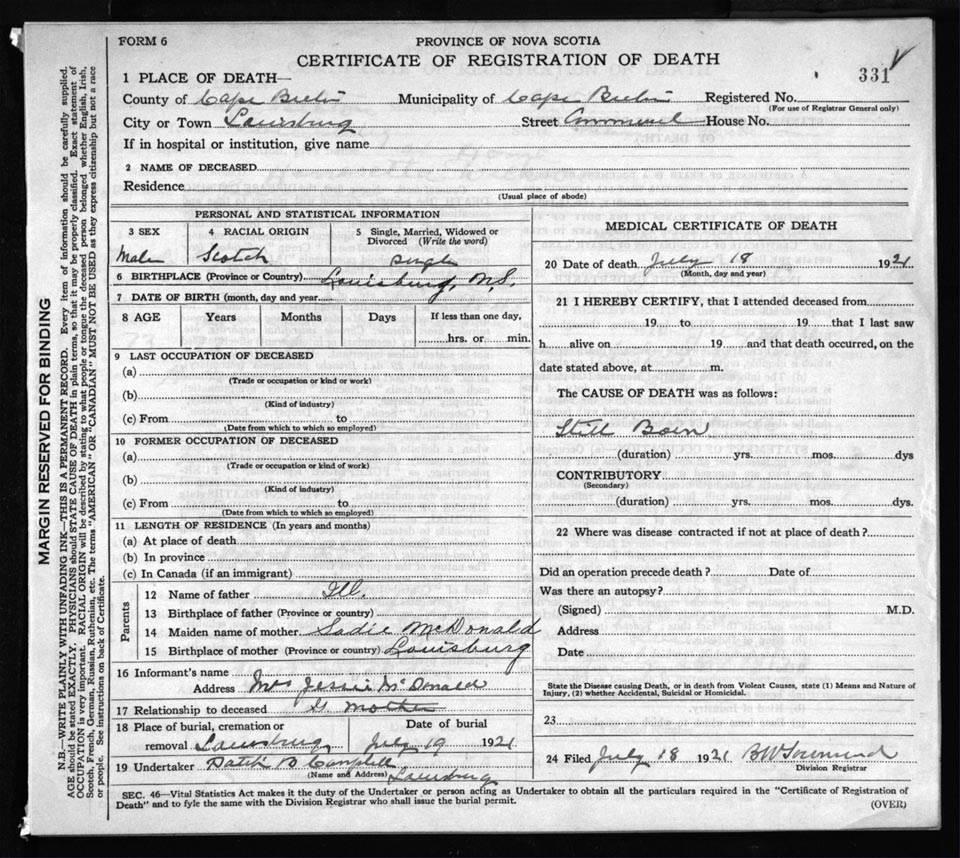 FORM 6
PROVINCE OF NOVA SCOTIA
CERTIFICATE OF REGISTRATION OF DEATH
331
1 PLACE OF DEATH—
County of Cape Breton Municipality of Cape Breton Registered No.
(For use of Registrar General only)
City or Town Louisburg Street Commercial House No.
If in hospital or institution, give name
2 NAME OF DECEASED
Residence
(Usual place of abode)
PERSONAL AND STATISTICAL INFORMATION
3 SEX 4 RACIAL ORIGIN 5 Single, Married, Widowed or
Divorced (Write the word)
Male Scotch Single
6 BIRTHPLACE (Province or Country) Louisburg, N.S.
7 DATE OF BIRTH (month, day and year)
8 AGE Years Months Days If less than one day,
hrs. or min.
9 LAST OCCUPATION OF DECEASED
(a)
(Trade or occupation or kind or work)
(b)
(Kind of industry)
(c) From to
(Date from which to which so employed)
10 FORMER OCCUPATION OF DECEASED
(a)
(Trade or occupation or kind of work)
(b)
(Kind of industry)
(c) From to
(Date from which to which so employed)
11 LENGTH OF RESIDENCE (In years and months)
(a) At place of death
(b) In province
(c) In Canada (if an immigrant)
Parents
12 Name of father Ill.
13 Birthplace of father (Province or country)
14 Maiden name of mother Sadie McDonald
15 Birthplace of mother (Province or country) Louisburg
16 Informant's name
Address Mrs Jessie McDonald
17 Relationship to deceased G. Mother
18 Place of burial, cremation or Date of burial
removal Louisburg July 19 1921
19 Undertaker B Campbell
(Name and Address) Louisburg
MEDICAL CERTIFICATE OF DEATH
20 Date of death July 18 1921
(Month, day and year)
21 I HEREBY CERTIFY, that I attended deceased from
19 to 19 that I last saw
h alive on 19 and that death occurred, on the
date stated above, at m.
The CAUSE OF DEATH was as follows:
Still Born
(duration) yrs. mos. dys
CONTRIBUTORY
(Secondary)
(duration) yrs. mos. dys.
22 Where was disease contracted if not at place of death?
Did an operation precede death? Date of
Was there an autopsy?
(Signed) M.D.
Address
Date
State the Disease causing Death, or in death from Violent Causes, state (1) Means and Nature of
Injury, (2) whether Accidental, Suicidal or Homicidal.
23
24 Filed July 18 1921 B W Townsend
Division Registrar
SEC. 46—Vital Statistics Act makes it the duty of the Undertaker or person acting as Undertaker to obtain all the particulars required in the "Certificate of Registration of
Death" and to fyle the same with the Division Registrar who shall issue the burial permit.
(OVER)
MARGIN RESERVED FOR BINDING
N.B.—WRITE PLAINLY WITH UNFADING INK—THIS IS A PERMANENT RECORD. Every item of information should be carefully supplied.
AGE should be stated EXACTLY. PHYSICIANS should STATE CAUSE OF DEATH in plain terms, so that it may be properly classified. Exact statement of
OCCUPATION is very important. RACIAL ORIGIN will be described by stating to what people or tongue the deceased person belonged whether English, Irish,
Scotch, French, German, Russian, Ruthenian, etc. The terms "AMERICAN" OR "CANADIAN" MUST NOT BE USED as they express citizenship but not a race
or people. See instructions on back of Certificate.